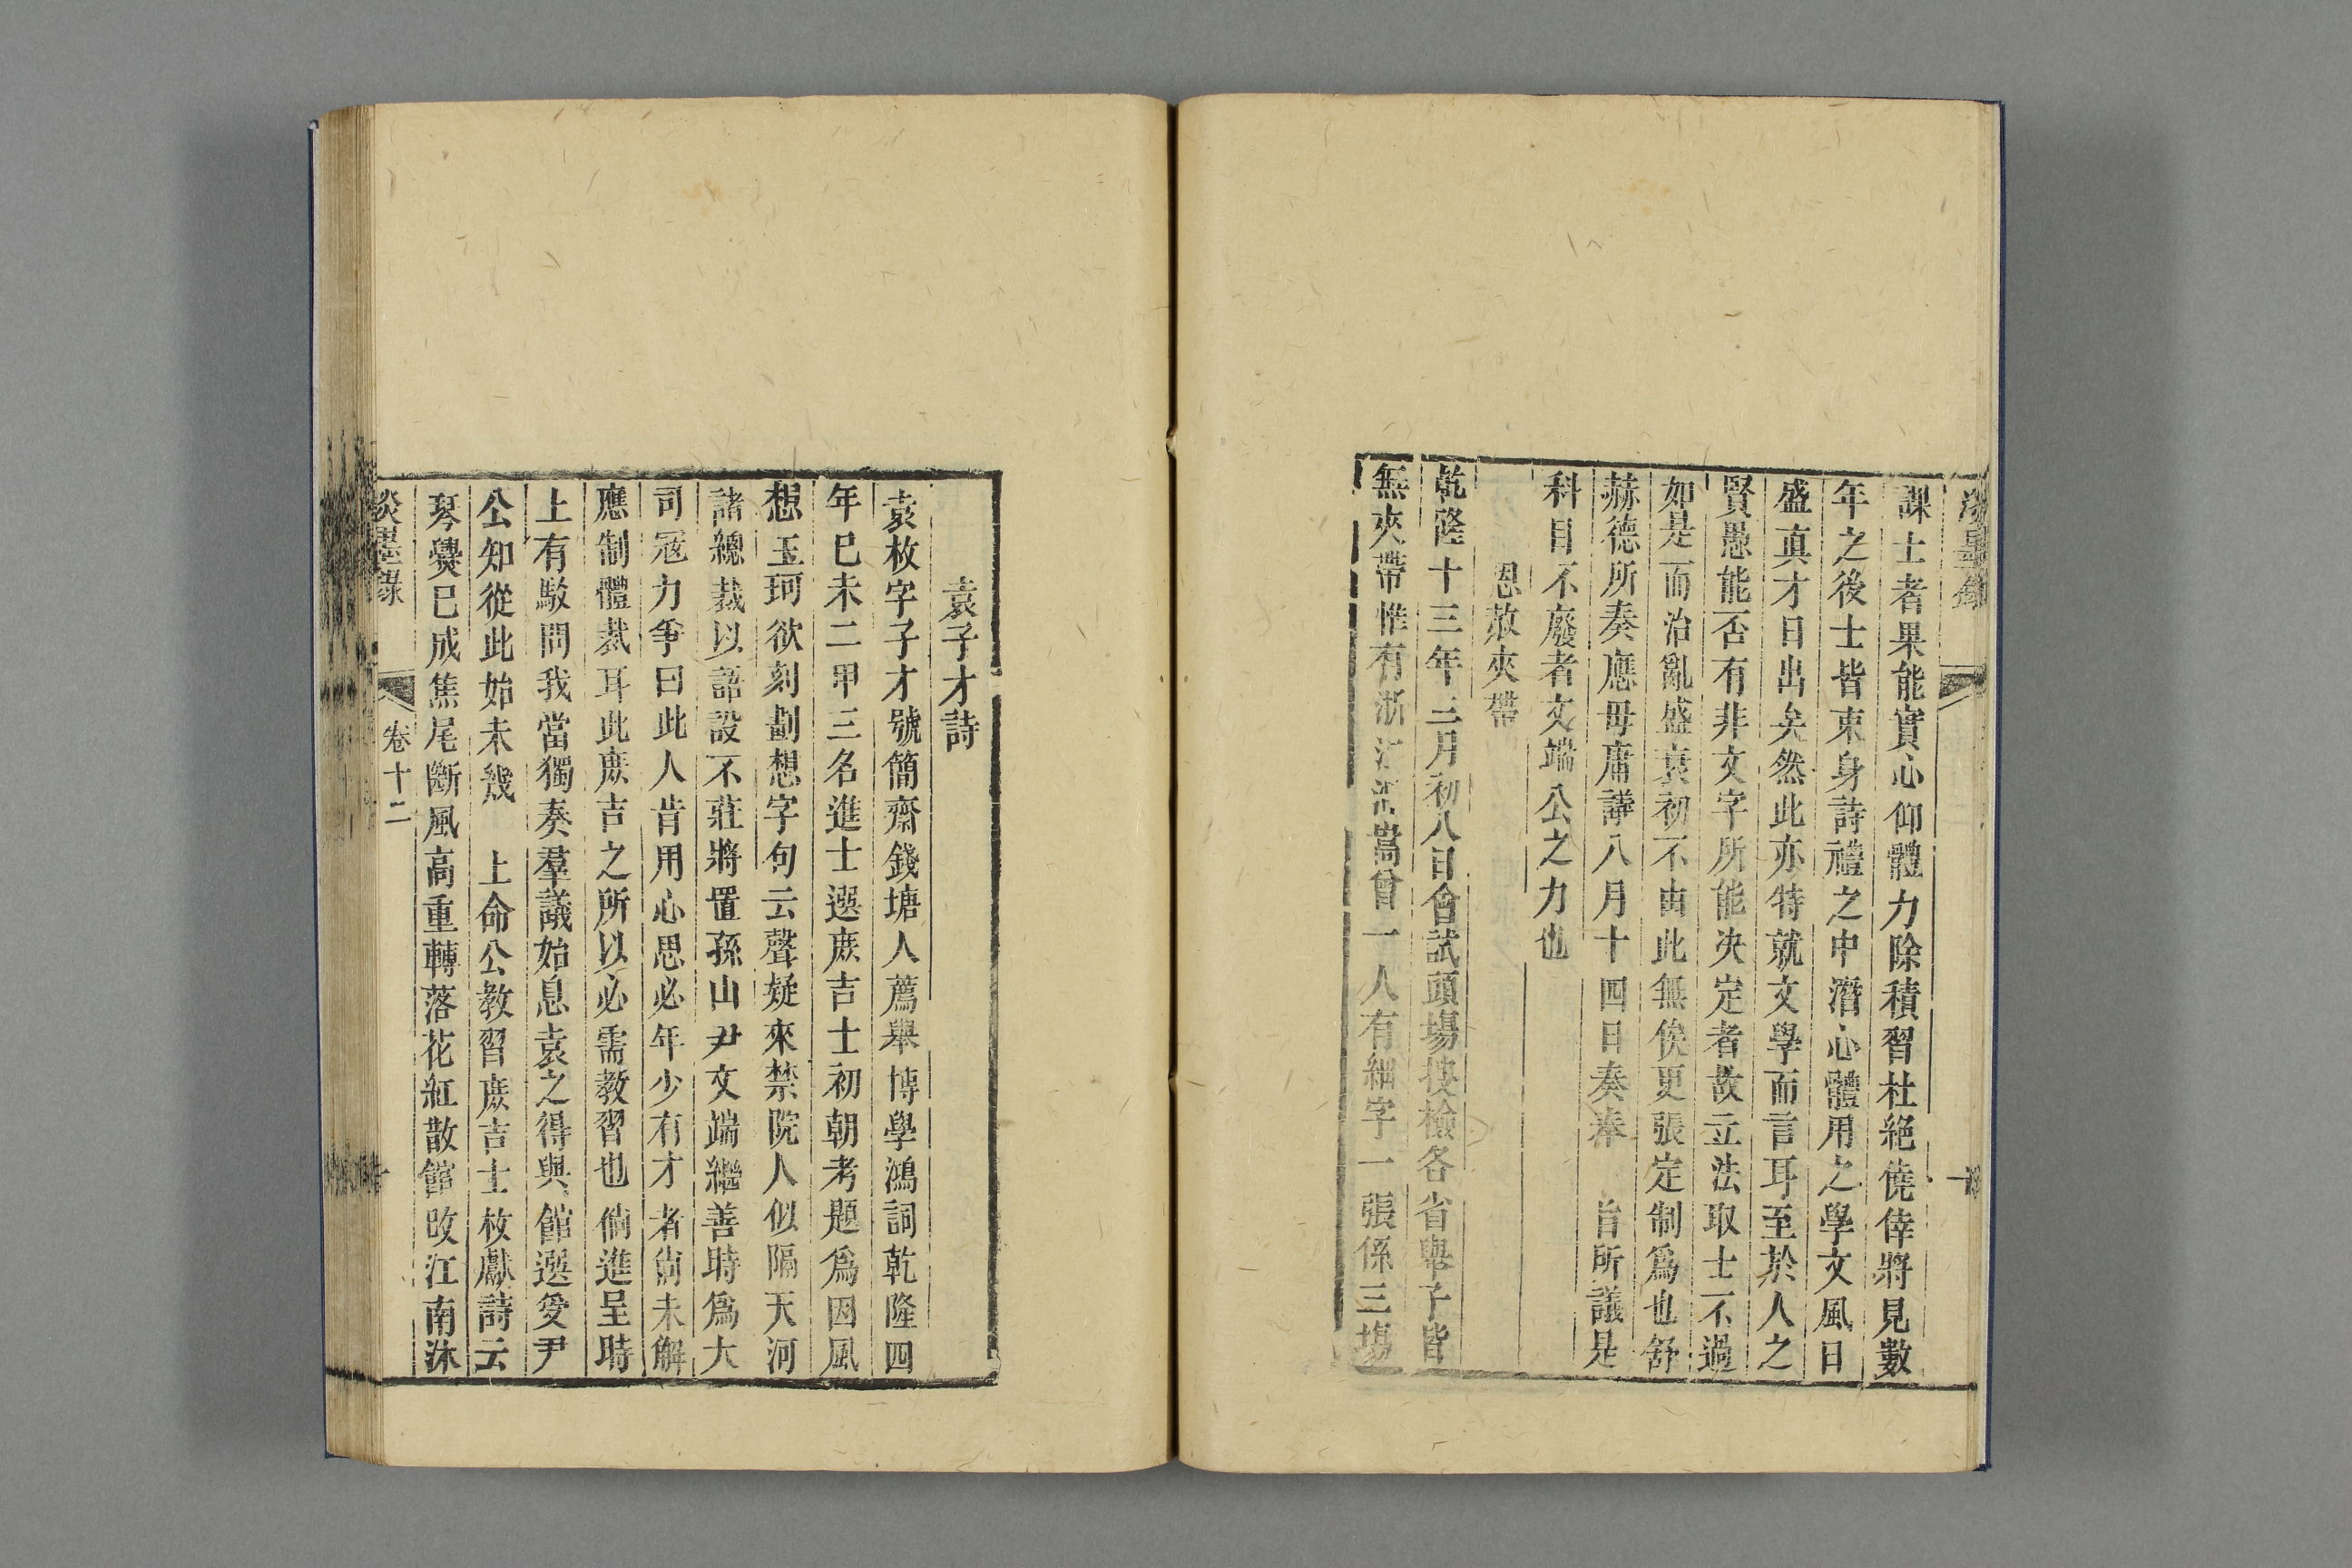 淡墨錄
課士者果能實心仰體力除積習杜絕僥倖將見數
年之後士皆束身詩禮之中潛心體用之學文風日
盛真才日出矣然此亦特就文學而言耳至於人之
賢愚能否有非文字所能决定者故立法取士不過
如是而治亂盛衰初不由此無俟更張定制爲也舒
赫德所奏應毋庸議八月十四日奏奉　旨所議是
科目不廢者文端公之力也
恩赦夾帶
乾隆十三年三月初八日會試頭場搜檢各省舉子皆
無夾帶惟有浙江曾一人有細字一張係三塲
袁子才詩
袁枚字子才號簡齋錢塘人薦舉博學鴻詞乾隆四
年巳未二甲三名進士選庶吉士初朝考題爲因風
想玉珂欲刻劃想字句云聲疑來禁院人似隔天河
諸總裁以語設不莊將置孫山尹文端繼善時爲大
司冦力爭曰此人肯用心思必年少有才者尚未解
應制體裁耳此庶吉之所以必需教習也倘進呈時
上有駁問我當獨奏羣議始息袁之得與館選爰尹
公知從此始未幾　上命公教習庶吉士枚獻詩云
琴爨已成焦尾斷風高重轉落花紅散館改江南沭
淡墨錄　卷十二